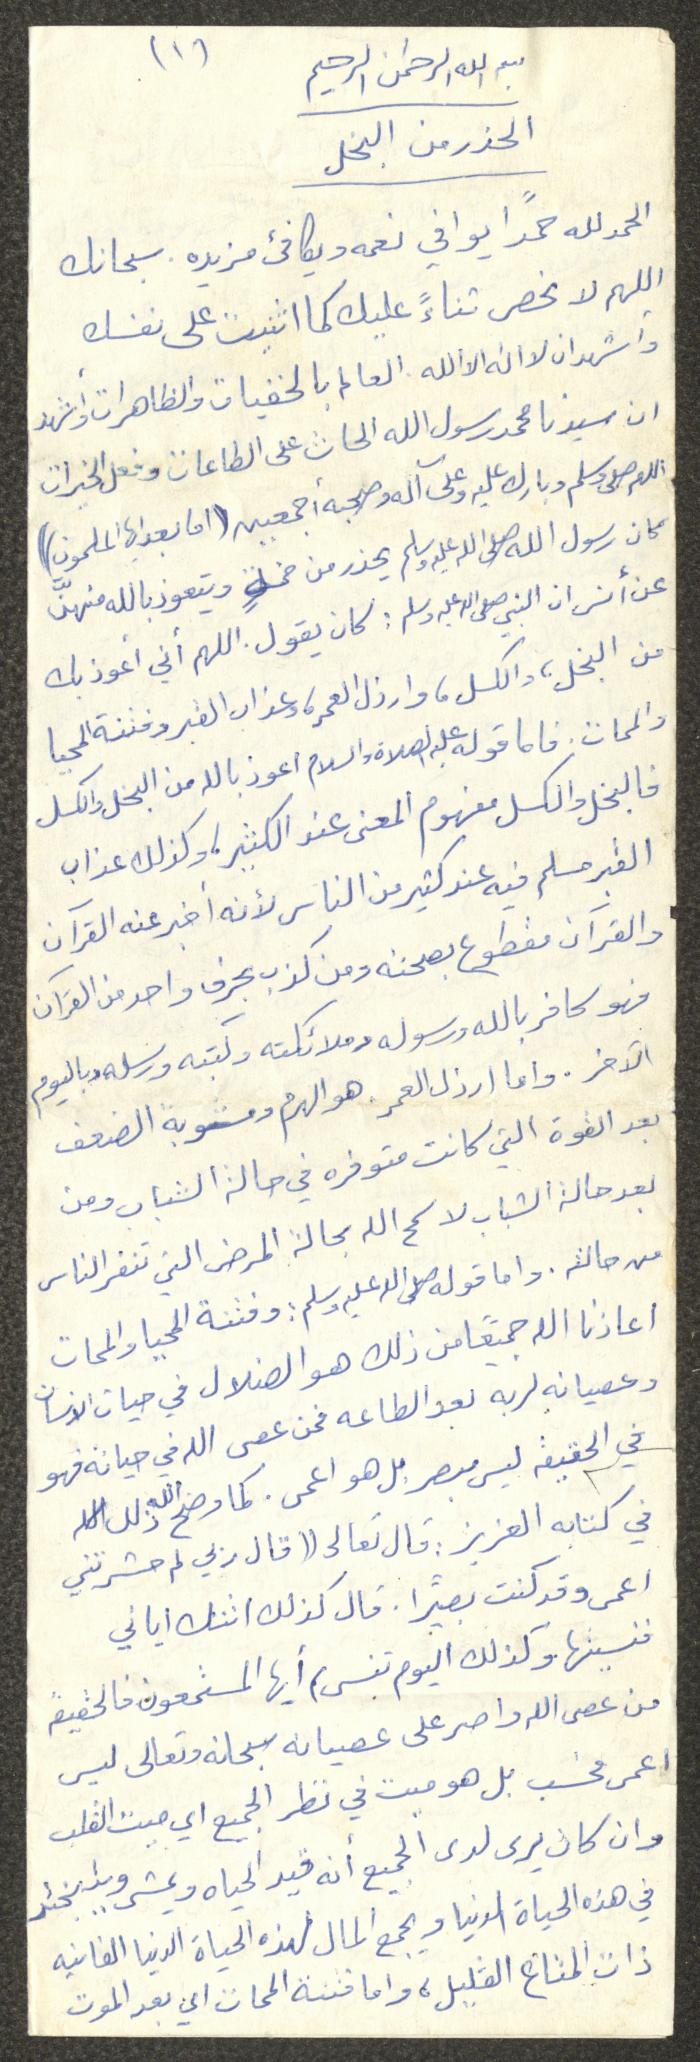 (١)
بسم الله الرحمن الرحيم
الحذر من البخل
الحمد لله حمدًا يوافي نعمه ويكافئ مزيده. سبحانك
اللهم لا نحص ثناءً عليك كما اثنيت على نفسك
وأشهد ان لا اله الا الله. العالم بالخفيات والظاهرات وأشهد
ان سيدنا محمد رسول الله الحاث على الطاعات وفعل الخيرات
اللهم صلى وسلم وبارك عليه وعلى آله وصحبه أجمعين ((اما بعد ايها المسلمون))
كان رسول الله صلى الله عليه وسلم يحذر من خمسةٍ ويتعوذ بالله منهنَّ
عن أنس ان النبي صلى الله عليه وسلم: كان يقول. اللهم أني أعوذ بك
من البخل، والكسل، وارذل العمر، وعذاب القبر وفتنة المحيا
والممات. فاما قوله عليه الصلاة والسلام اعوذ بالله من البخل والكسل
فالبخل والكسل مفهوم المعنى عند الكثير، وكذلك عذاب
القبر مسلم فيه عند كثير من الناس لأنه أخبر عنه القرآن
والقرآن مقطوع بصحته ومن كذب بحرف واحد من القرآن
فهو كافر بالله ورسوله وملائكته وكتبه ورسله وباليوم
الآخر. واما ارذل العمر. هو الهرم ومنتوبة الضعف
بعد القوة التي كانت متوفره في حالة الشباب ومن
بعد حالة الشباب لا سمح الله بحالة المرض التي تنفر الناس
من حالته. واما قوله صلى الله عليه وسلم: وفتنة المحيا والممات
اعاذنا الله جميعًا من ذلك هو الضلال في حيات الانسان
وعصيانه لربه بعد الطاعه فمن عصى الله في حياته فهو
في الحقيقة ليس مبصر بل هو اعمى. كما وضح الله ذلك
في كتابه العزيز: قال تعالى ((قال ربي لم حشرتني
اعمى وقد كنت بصيرًا. قال كذلك اتتك اياتي
فنسيتها وكذلك اليوم تنسى) أيها المستمعون فالحقيقة
من عصى الله واصر على عصيانه سبحانه وتعالى ليس
اعمى فحسب بل هو ميت في نظر الجميع اي ميت القلب
وان كان يرى لدى الجميع أنه قيد الحياه ويمشي ويتبختر
في هذه الحياة الدنيا ويجمع المال لهذه الحياة الدنيا الفانيه
ذات المتاع القليل، واما فتنة الممات اي بعد الموت